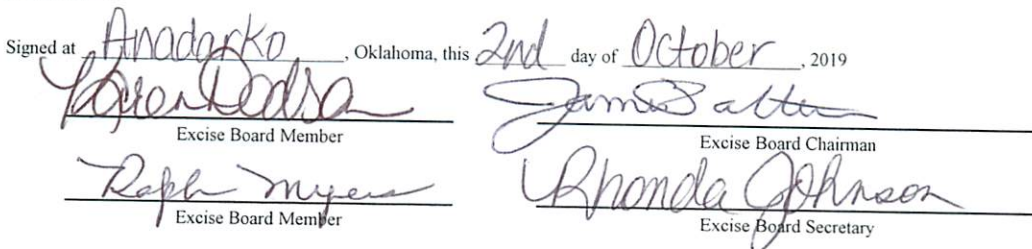 Signed at Anadarko, Oklahoma, this 2nd day of October, 2019
Karen Dodson
Excise Board Member
Excise Board Chairman
Ralph Myers
Excise Board Member
Rhonda Johnson
Excise Board Secretary